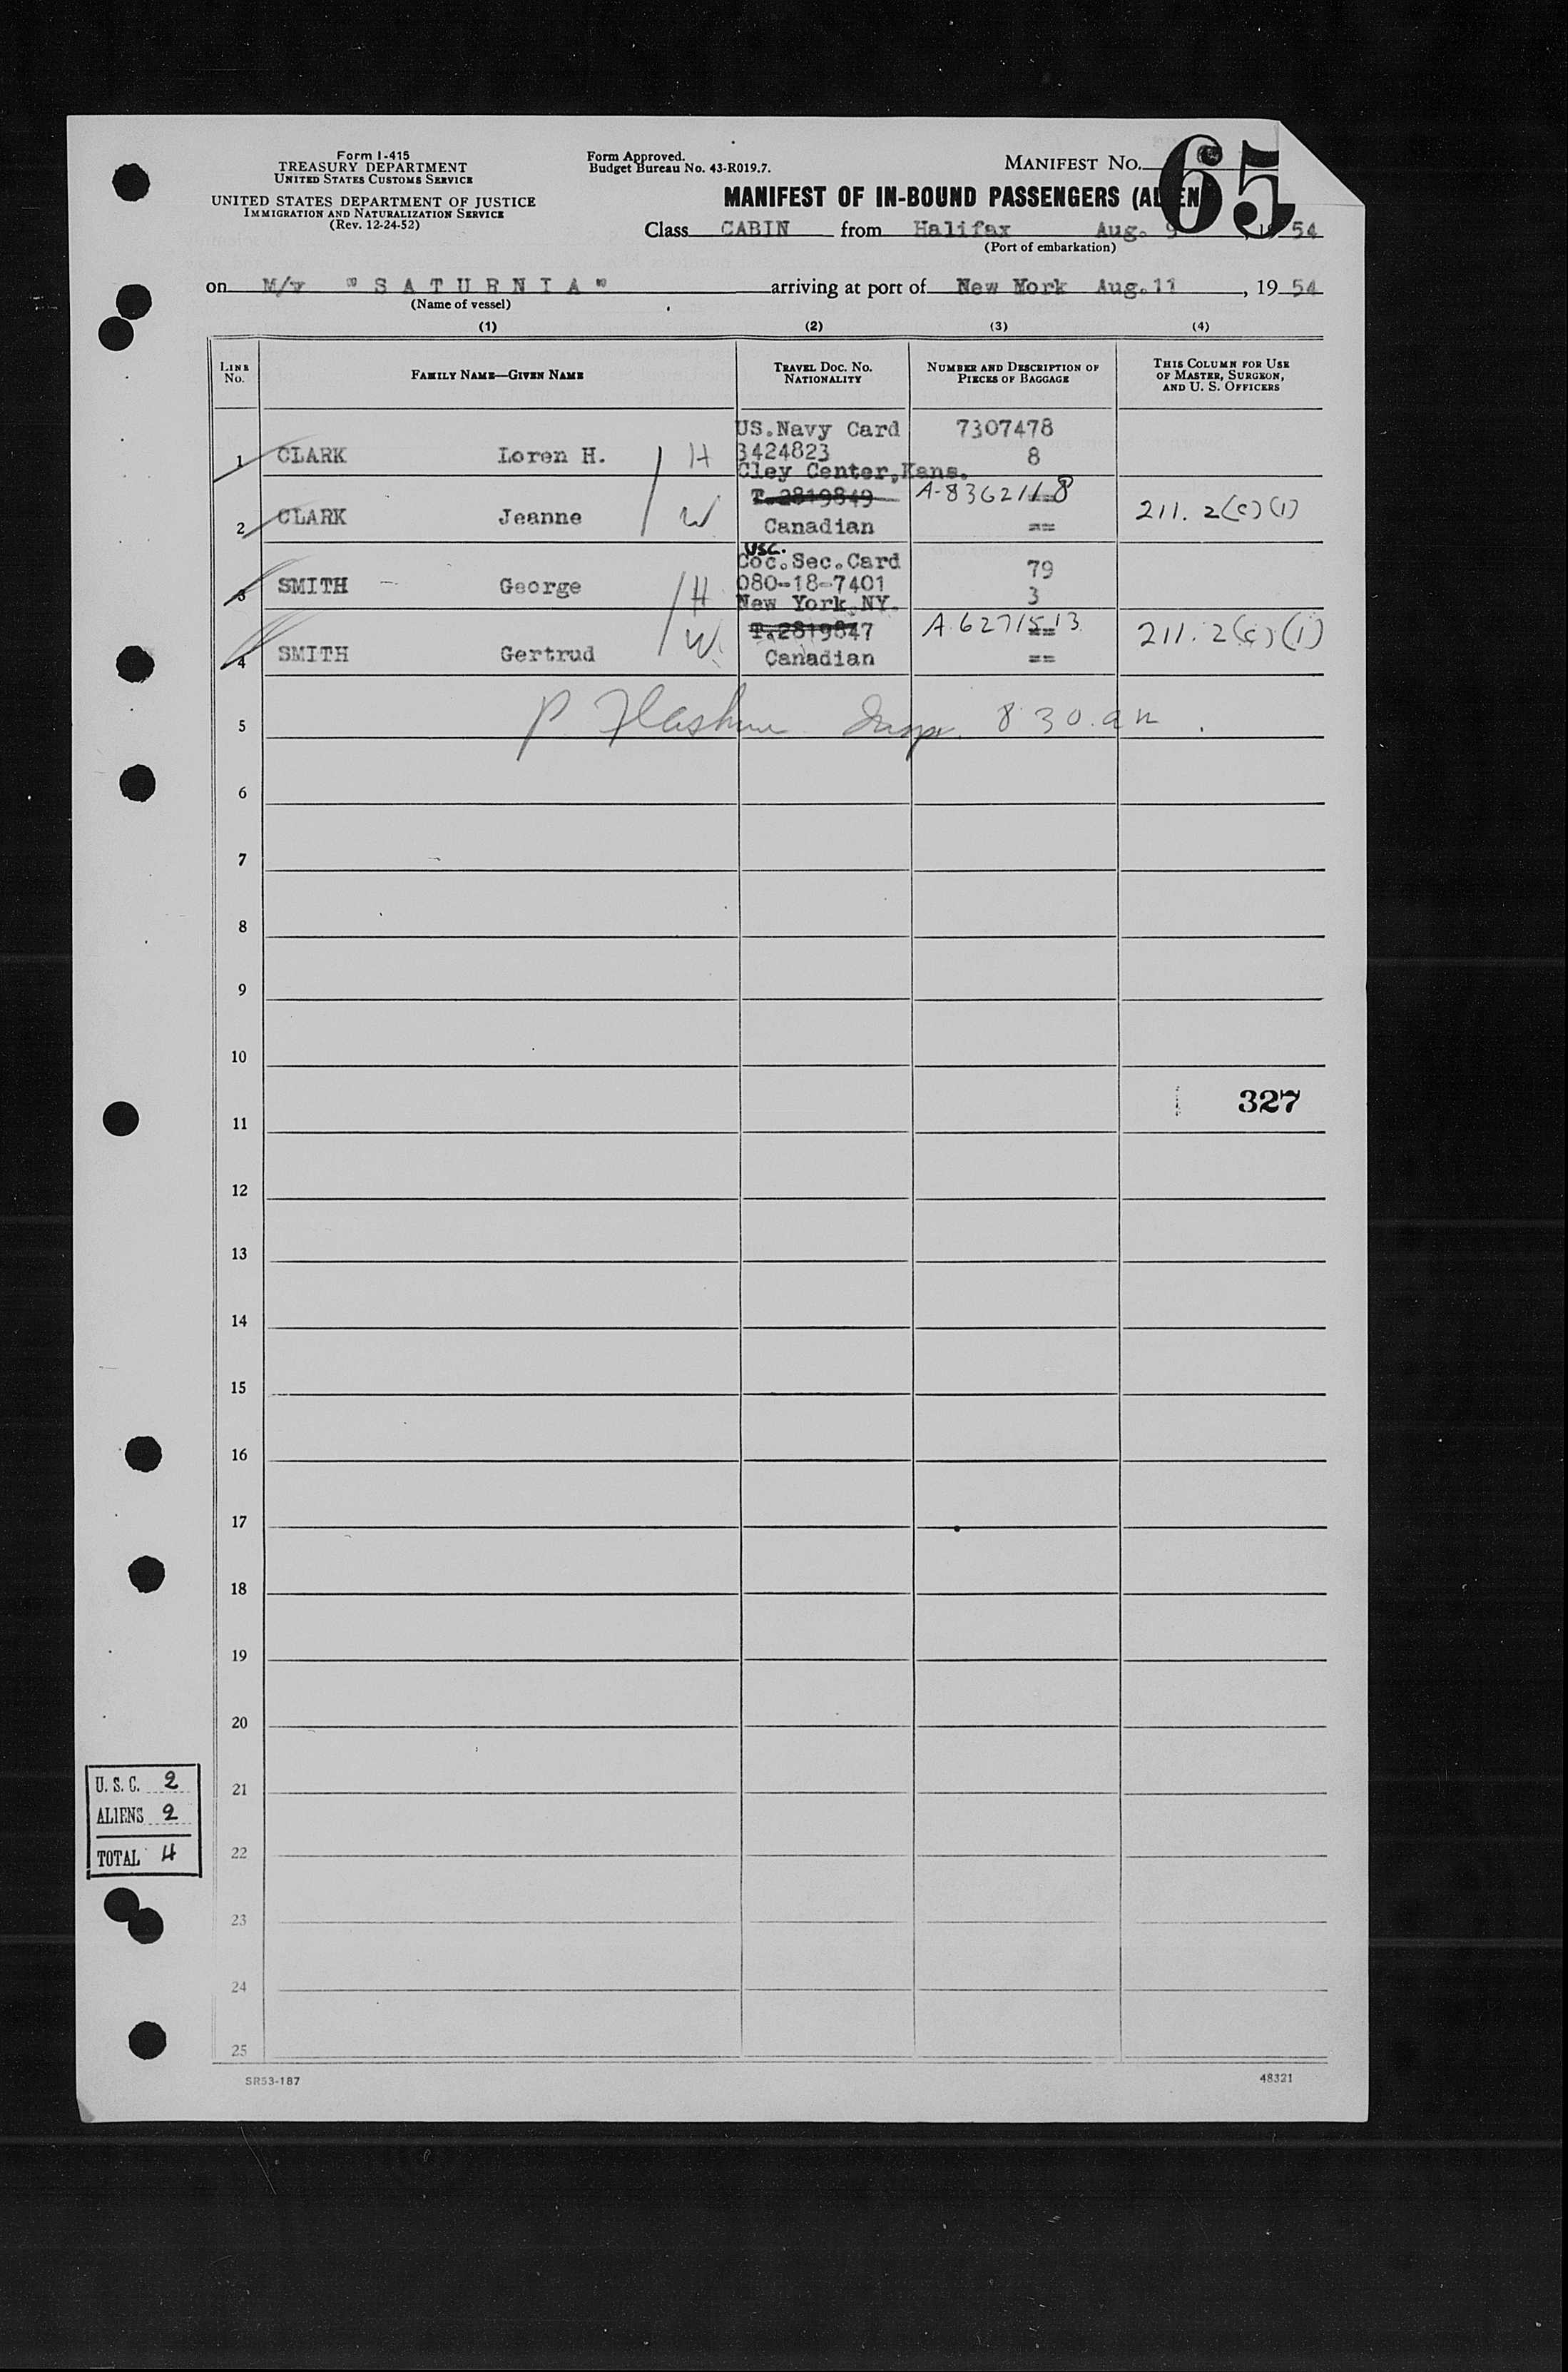 Form I-415
TREASURY DEPARTMENT
UNITED STATES CUSTOMS SERVICE
UNITED STATES DEPARTMENT OF JUSTICE
IMMIGRATION AND NATURALIZATION SERVICE
(Rev. 12-24-52)
Form Approved.
Budget Bureau No. 43-R019.7.
MANIFEST NO. 65
MANIFEST OF IN-BOUND PASSENGERS (ALIEN)
Class CABIN from Halifax Aug. 9, 1954
(Port of embarkation)
on M/v "SATURNIA" arriving at port of New York Aug.11, 1954
(Name of vessel)
(1) (2) (3) (4)
LINE No. FAMILY NAME—GIVEN NAME TRAVEL DOC. NO. NATIONALITY NUMBER AND DESCRIPTION OF PIECES OF BAGGAGE THIS COLUMN FOR USE OF MASTER, SURGEON, AND U. S. OFFICERS
US.Navy Card 7307478
1 CLARK Loren H. H 3424823 8
Cley Center,Kans.
T.2819849 A-8362118 ==
2 CLARK Jeanne W Canadian == 211.2(c)(1)
USC.
Coc.Sec.Card 79
3 SMITH George H 080-18-7401 3
New York NY.
T.2819847 A 6271513 == 211.2(c)(1)
4 SMITH Gertrud W. Canadian ==
5 P. Insp. 8 30.am.
6
7
8
9
10
11 327
12
13
14
15
16
17
18
19
20
21
22
23
24
25
U. S. C. 2
ALIENS 2
TOTAL 4
SR53-187 48321